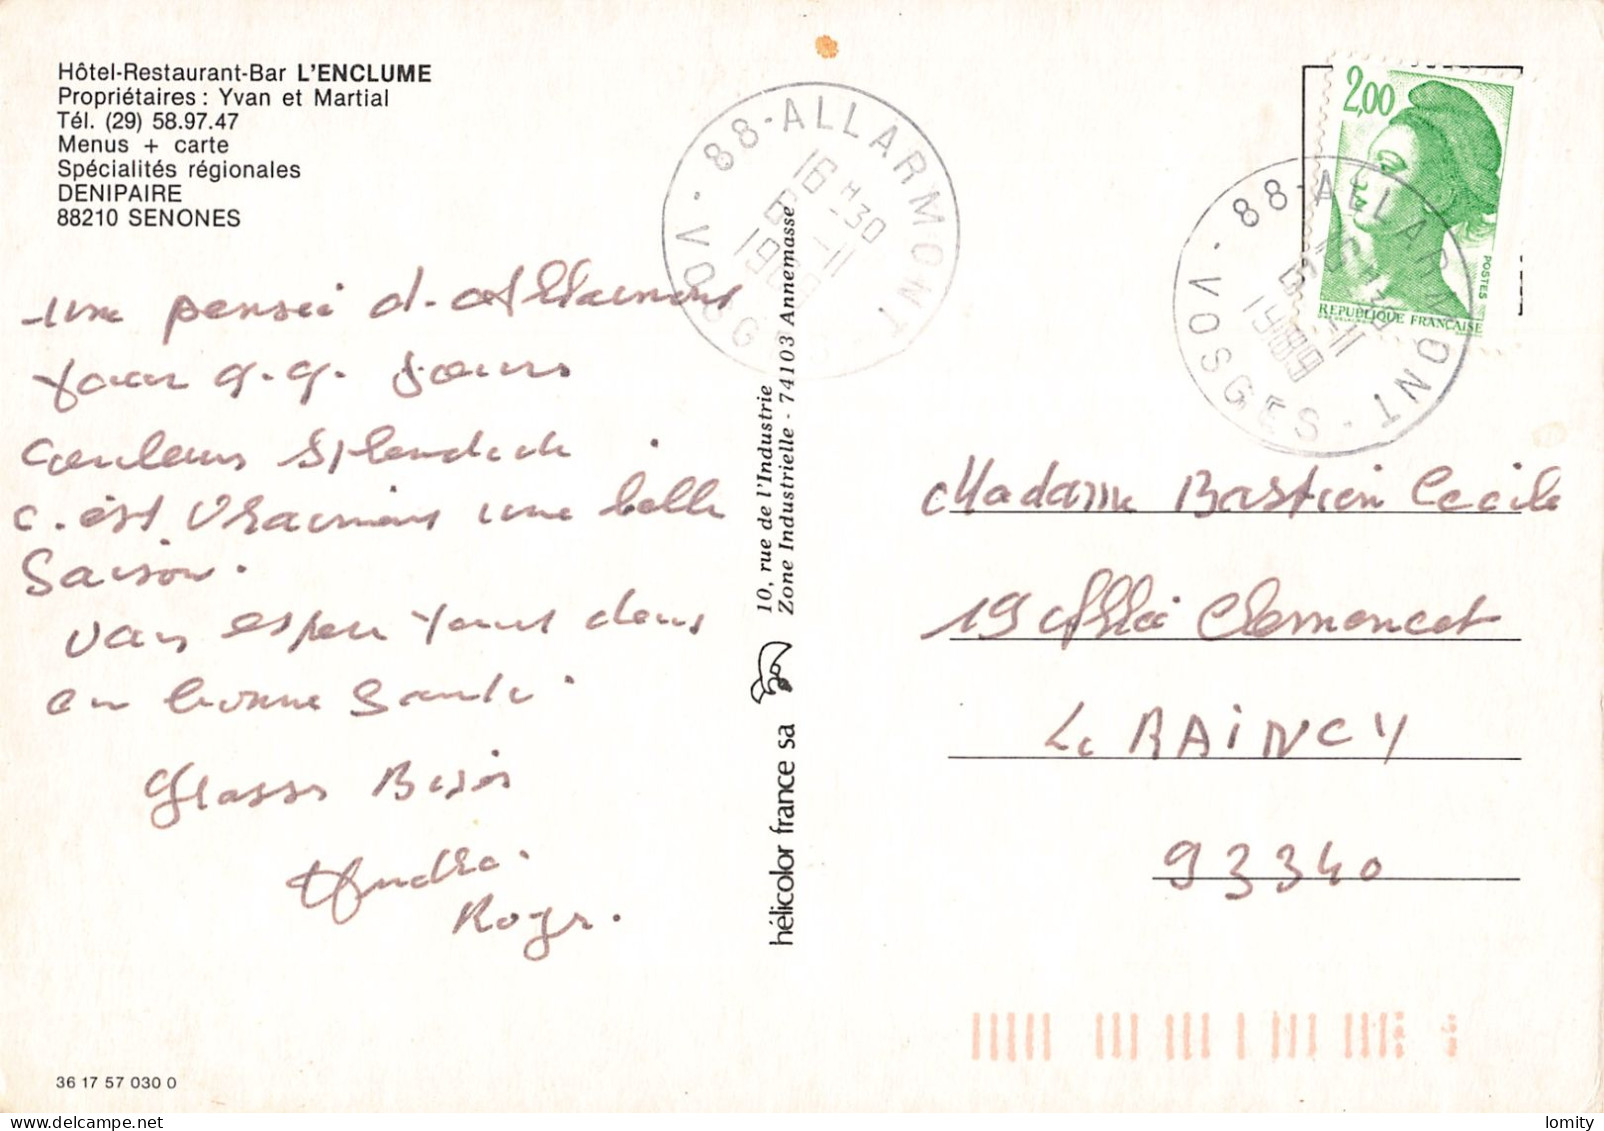 Hôtel-Restaurant-Bar L'ENCLUME
Propriétaires : Yvan et Martial
Tél. (29) 58.97.47
Menus + carte
Spécialités régionales
DENIPAIRE
88210 SENONES
une pensée d'Allarmont
pour q.q. jours
couleurs splendide
c'est vraiment une belle
saison.
vous espère tous deux
en bonne santé.
Grosses Bises
Roger.
36 17 57 030 0
88-ALLARMONT
16 H 30
6-11
VOSGES
10, rue de l'Industrie
Zone Industrielle - 74103 Annemasse
hélicolor france sa
2,00
POSTES
REPUBLIQUE FRANCAISE
88-ALLARMONT
VOSGES
Madame Bastien Cecile
19 Allée Clemencet
Le RAINCY
93340
lomity